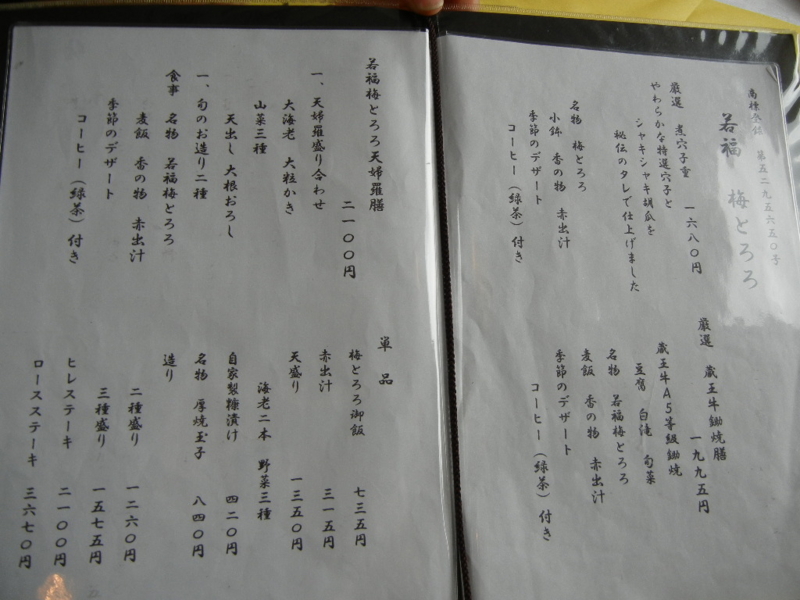 商標登録 第五二九五六五〇号
若福 梅とろろ
厳選 煮穴子重 一六八〇円
やわらかな特選穴子と
シャキシャキ胡瓜を
秘伝のタレで仕上げました
名物 梅とろろ
小鉢 香の物 赤出汁
季節のデザート
コーヒー（緑茶）付き
厳選 蔵王牛鋤焼膳
一九九五円
蔵王牛A5等級鋤焼
豆腐 白滝 旬菜
名物 若福梅とろろ
麦飯 香の物 赤出汁
季節のデザート
コーヒー（緑茶）付き
若福梅とろろ天婦羅膳
二一〇〇円
一、天婦羅盛り合わせ
大海老 大粒かき
山菜三種
天出し 大根おろし
一、旬のお造り二種
食事 名物 若福梅とろろ
麦飯 香の物 赤出汁
季節のデザート
コーヒー（緑茶）付き
単品
梅とろろ御飯 七三五円
赤出汁 三一五円
天盛り 一三五〇円
海老二本 野菜三種
自家製糠漬け 四二〇円
名物 厚焼玉子 八四〇円
造り
二種盛り 一二六〇円
三種盛り 一五七五円
ヒレステーキ 二一〇〇円
ロースステーキ 三六七〇円